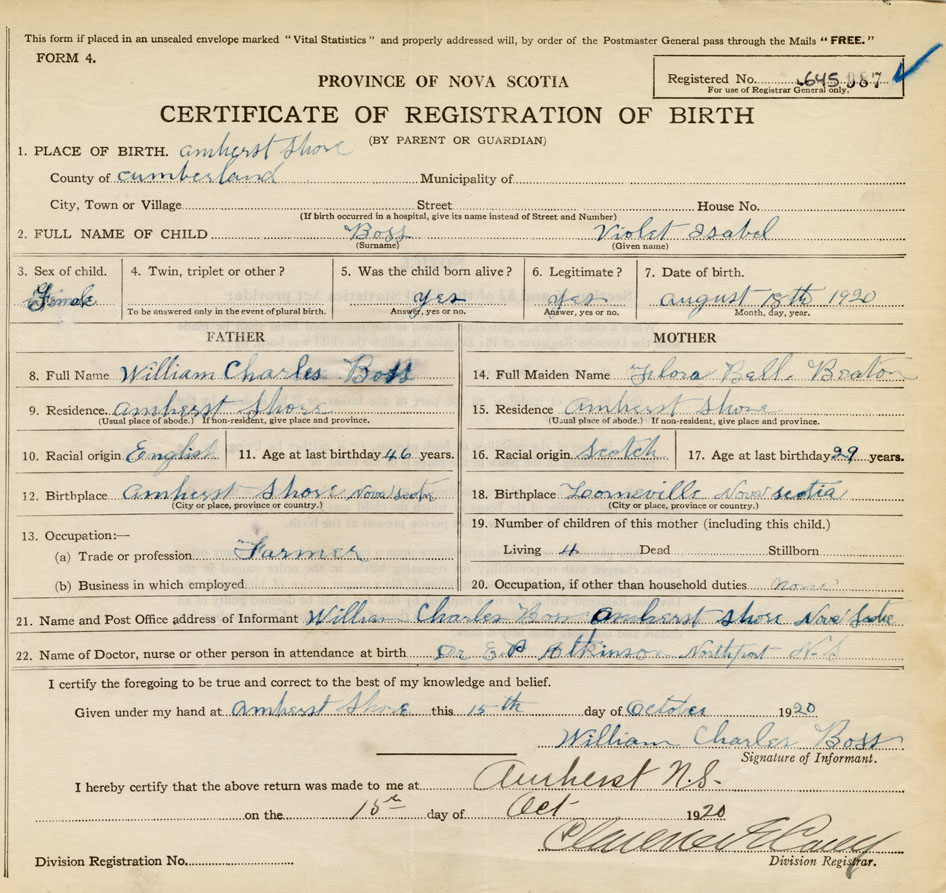 This form if placed in an unsealed envelope marked "Vital Statistics" and properly addressed will, by order of the Postmaster General pass through the Mails "FREE."
FORM 4.
PROVINCE OF NOVA SCOTIA
Registered No. 645 987
For use of Registrar General only.
CERTIFICATE OF REGISTRATION OF BIRTH
(BY PARENT OR GUARDIAN)
1. PLACE OF BIRTH. Amherst Shore
County of Cumberland Municipality of
City, Town or Village Street House No.
(If birth occurred in a hospital, give its name instead of Street and Number)
2. FULL NAME OF CHILD Boss Violet Isabel
(Surname) (Given name)
3. Sex of child. 4. Twin, triplet or other? 5. Was the child born alive? 6. Legitimate? 7. Date of birth.
Female yes yes August 18th 1920
To be answered only in the event of plural birth. Answer, yes or no. Answer, yes or no. Month, day, year.
FATHER MOTHER
8. Full Name William Charles Boss 14. Full Maiden Name Flora Bell. Beaton
9. Residence Amherst Shore 15. Residence Amherst Shore
(Usual place of abode.) If non-resident, give place and province. (Usual place of abode.) If non-resident, give place and province.
10. Racial origin English 11. Age at last birthday 46 years. 16. Racial origin Scotch 17. Age at last birthday 29 years.
12. Birthplace Amherst Shore Nova Scotia 18. Birthplace Lorneville Nova Scotia
(City or place, province or country.) (City or place, province or country.)
13. Occupation:— 19. Number of children of this mother (including this child.)
(a) Trade or profession Farmer Living 4 Dead Stillborn
(b) Business in which employed 20. Occupation, if other than household duties none
21. Name and Post Office address of Informant William Charles Boss Amherst Shore Nova Scotia
22. Name of Doctor, nurse or other person in attendance at birth Dr E P Atkinson Northport N.S
I certify the foregoing to be true and correct to the best of my knowledge and belief.
Given under my hand at Amherst Shore this 15th day of October 1920
William Charles Boss
Signature of Informant.
I hereby certify that the above return was made to me at Amherst N.S.
on the 15 day of Oct 1920
Division Registration No. Division Registrar.